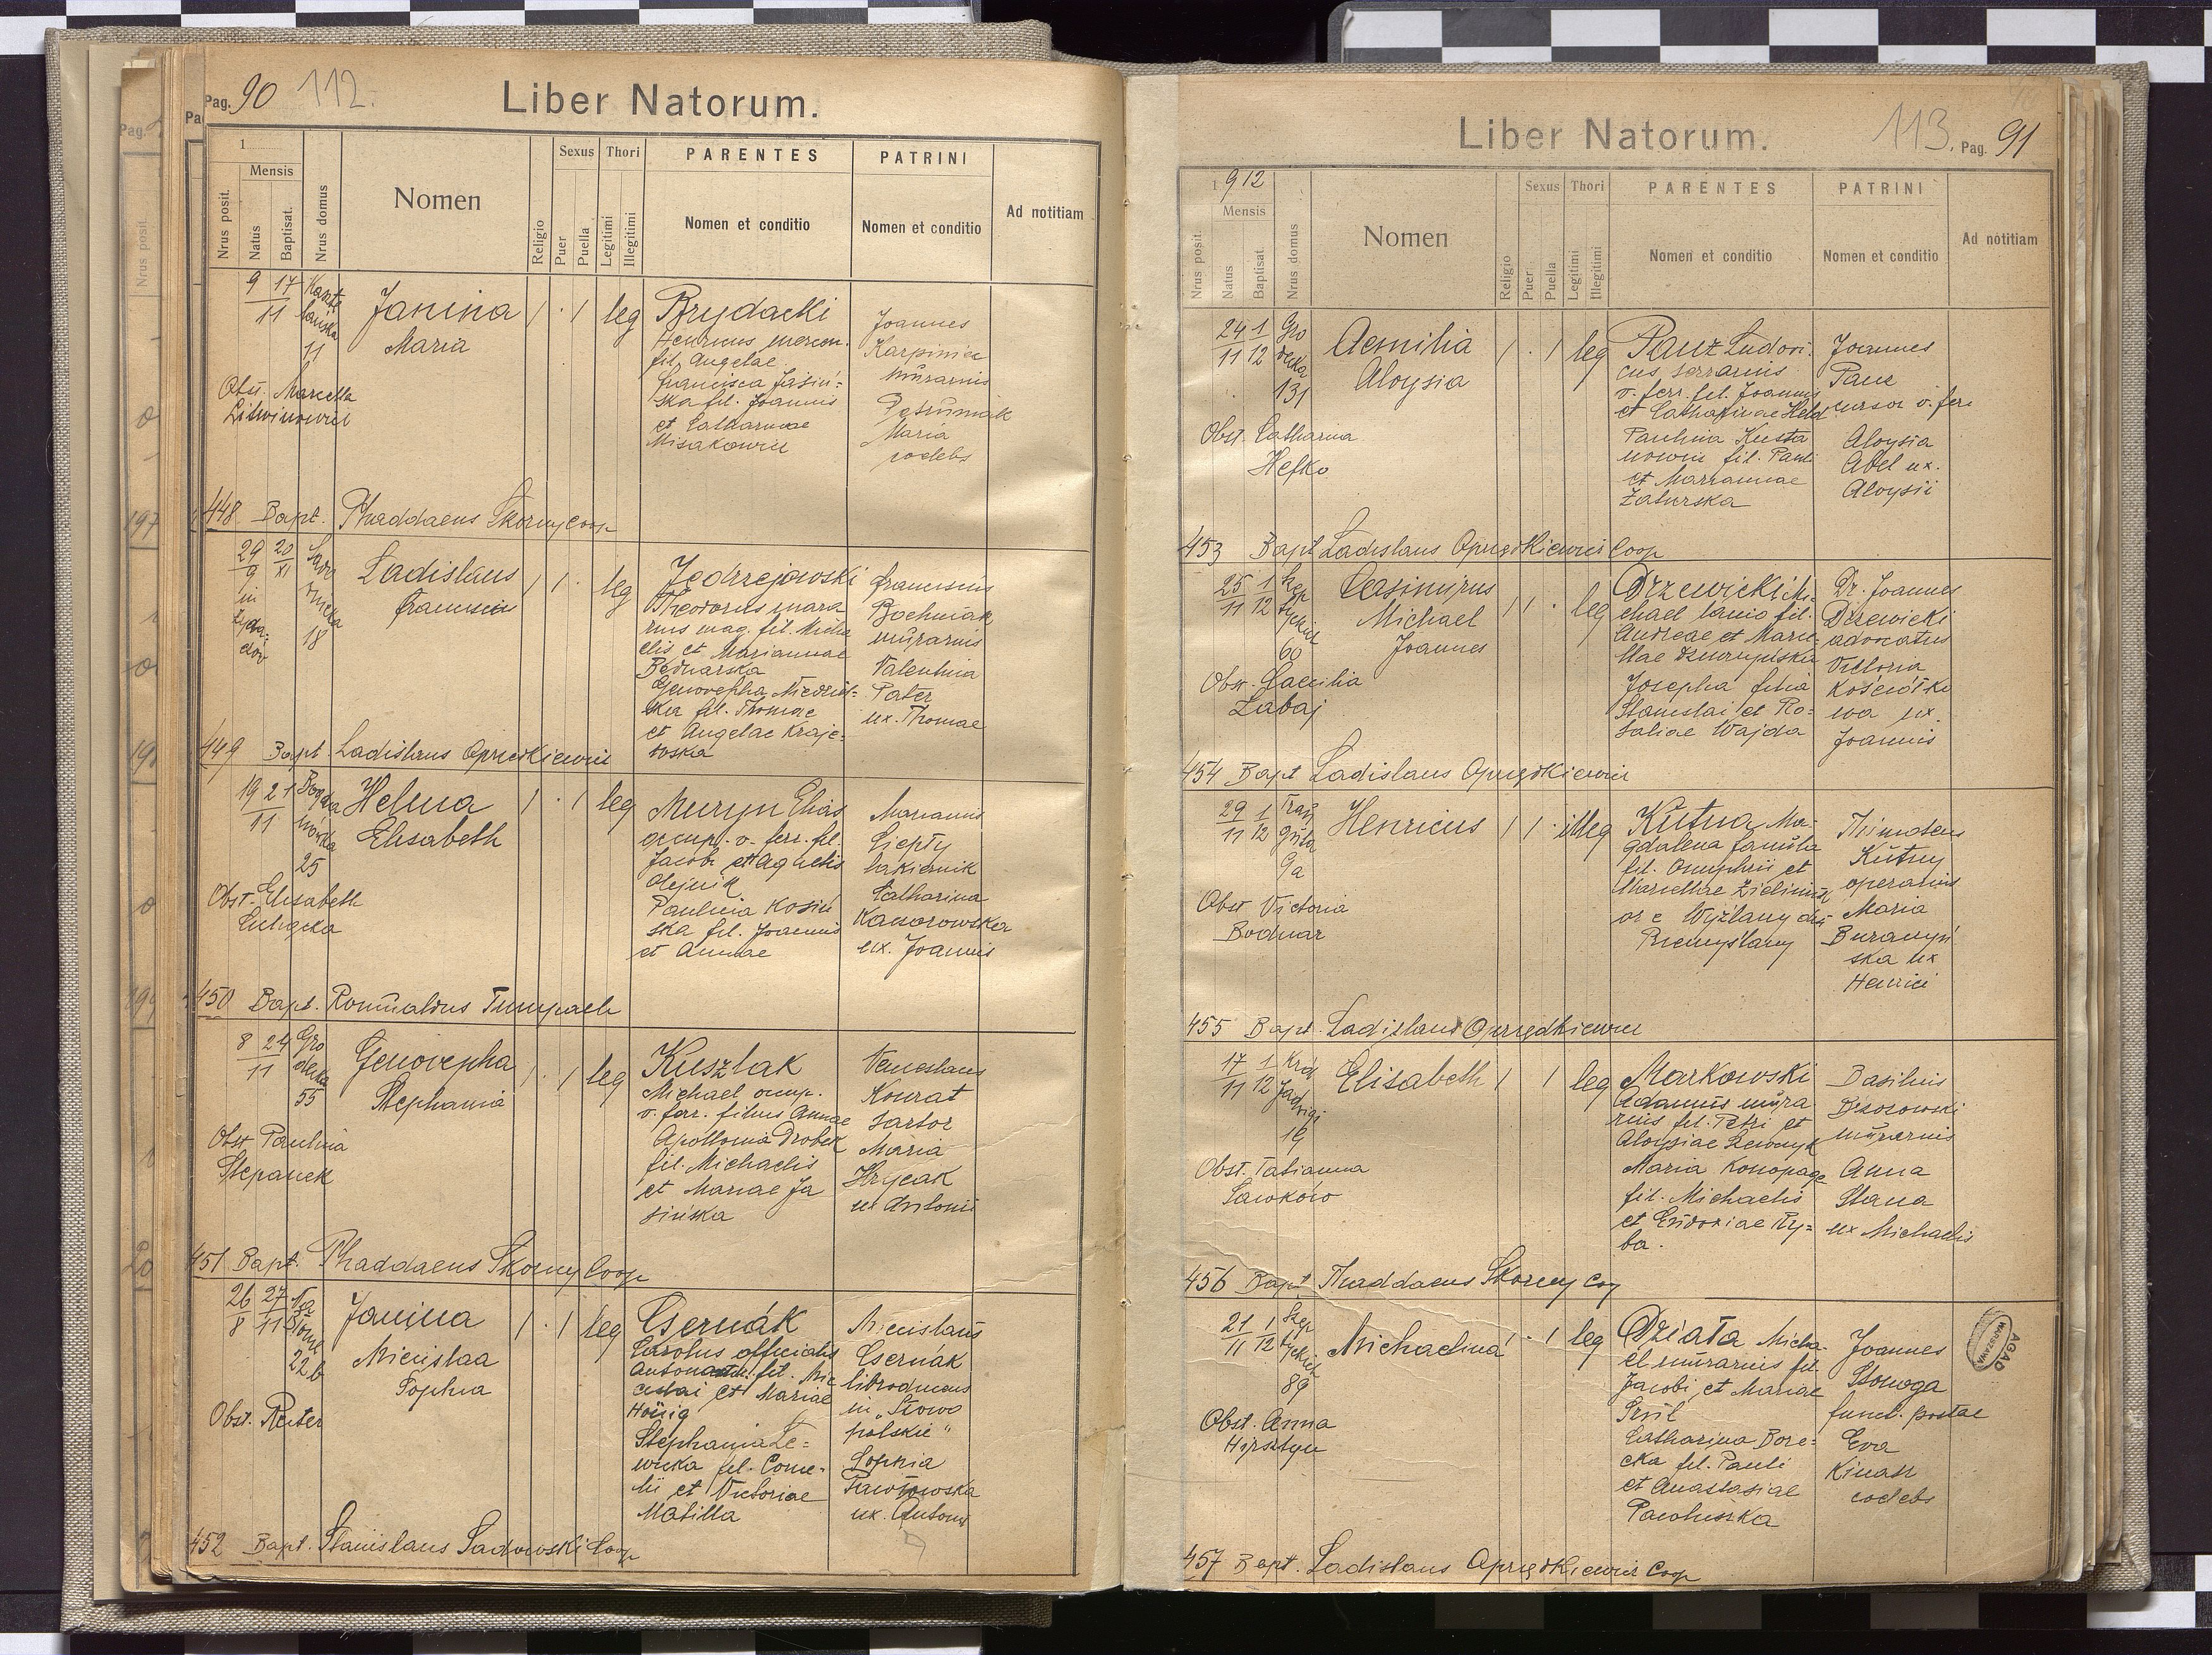 Pag. 90 112.
Liber Natorum.
1
Mensis
Nrus posit.
Natus
Baptisat.
Nrus domus
Nomen
Religio
Sexus
Puer
Puella
Thori
Legitimi
Illegitimi
PARENTES
Nomen et conditio
PATRINI
Nomen et conditio
Ad notitiam
9 17
11
11
Janina
Maria
1 · 1 leg
Brydacki
Henricus mercen.
fil. Angelae
Francisca Jasiń-
ska fil. Joannis
et Catharinae
Misakowicz
Joannes
Karpiniec
murarius
Petruniak
Maria
coelebs
Obst. Marcella
Litwinowicz
448 Bapt. Thaddaeus Skorny Coop
29 20
9 XI
in
18
Ladislaus
Franciscus
1 1 · leg
Jędrzejowski
Theodorus mura
rius mag. fil. Micha
elis et Mariannae
Bednarska
Genovepha Niedziel-
ska fil. Thomae
et Angelae Kraje-
wska
Franciscus
Bochniak
murarius
Valentina
Pater
ux. Thomae
449 Bapt. Ladislaus Oprzędkiewicz
19 21
11
25
Helena
Elisabeth
1 · 1 leg
Muryn Elias
occup. v. ferr. fil.
Jacobi et Agnetis
Olejnik
Paulina Kosiń
ska fil. Joannis
et Annae
Marianus
Ciepły
lakiernik
Catharina
Kaczorowska
ux. Joannis
Obst. Elisabeth
450 Bapt. Romualdus Tumpach
8 24
11
Gro
decka
55
Genovepha
Stephania
1 · 1 leg
Kuszlak
Michael occup.
v. ferr. filius Annae
Apollonia Drobek
fil. Michaelis
et Mariae Ja
sińska
Venceslaus
Konrat
sartor
Maria
Hrycak
ux Antonii
Obst Paulina
Stepanek
451 Bapt. Thaddaeus Skorny Coop
26 27
8 11
Na
Błonie
22b
Janina
Miecislaa
Sophia
1 · 1 leg
Csernák
Carolus officialis
fil. Mie
cislai et Mariae
Hönig
Stephania Le-
wicka fil. Corne-
lii et Victoriae
Matilla
Miecislaus
Csernák
in „Słowo
polskie"
Sophia
Pawłowska
ux. Antonii
Obst. Reiter
452 Bapt. Stanislaus Sadowski Coop
Liber Natorum.
113. Pag. 91
1912
Mensis
Nrus posit.
Natus
Baptisat
Nrus domus
Nomen
Religio
Sexus
Puer
Puella
Thori
Legitimi
Illegitimi
PARENTES
Nomen et conditio
PATRINI
Nomen et conditio
Ad notitiam
24 1
11 12
Gro
decka
131
Aemilia
Aloysia
1 · 1 leg
Panz Ludovi-
cus serrarius
v. ferr. fil. Joannis
et Catharinae Held
Paulina Kusta
nowicz fil. Pauli
et Mariannae
Zaturska
Joannes
Panz
cursor v. ferr
Aloysia
Abel ux.
Aloysii
Obst. Catharina
Hefko
453 Bapt Ladislaus Oprzędkiewicz Coop
25 1
11 12
Szep
tyckich
60
Casimirus
Michael
Joannes
1 1 · leg
Drzewicki Mi-
chael lanio fil.
Andreae et Marce-
llae
Josepha filia
Stanislai et Ro-
saliae Wajda
Dr. Joannes
Drzewicki
advocatus
Victoria
Kościółko
wa ux.
Joannis
Obst. Caecilia
Zabaj
454 Bapt Ladislaus Oprzędkiewicz
29 1
11 12
Trau
gutta
9a
Henricus
1 1 · illeg
Kutna Ma-
gdalena famula
fil. Onuphrii et
Marthae
or e Wyżlany dis
Przemyślany
Timoteus
Kutny
operarius
Maria
Buraczyń
ska ux
Henrici
Obst Victoria
Bodnar
455 Bapt. Ladislaus Oprzędkiewicz
17 1
11 12
Król
Jad
wigi
19
Elisabeth
1 1 leg
Markowski
Adamus mura
rius fil. Petri et
Aloysiae Szewczyk
Maria Konopage
fil. Michaelis
et Eudoxiae Ry-
ba.
Basilius
Brzozowski
murarius
Anna
Stana
ux Michaelis
Obst. Tatianna
Sawków
456 Bapt Thaddaeus Skorny Coop
21 1
11 12
Szep
tyckich
89
Michaelina
1 · 1 leg
Działa Micha-
el murarius fil.
Jacobi et Mariae
Catharina Bore-
cka fil. Pauli
et Anastasiae
Pawluszka
Joannes
Stonoga
funct. postae
Eva
Kinasz
coelebs
Obst. Anna
Hirsztyn
AGAD
WARSZAWA
457 Bapt. Ladislaus Oprzędkiewicz Coop